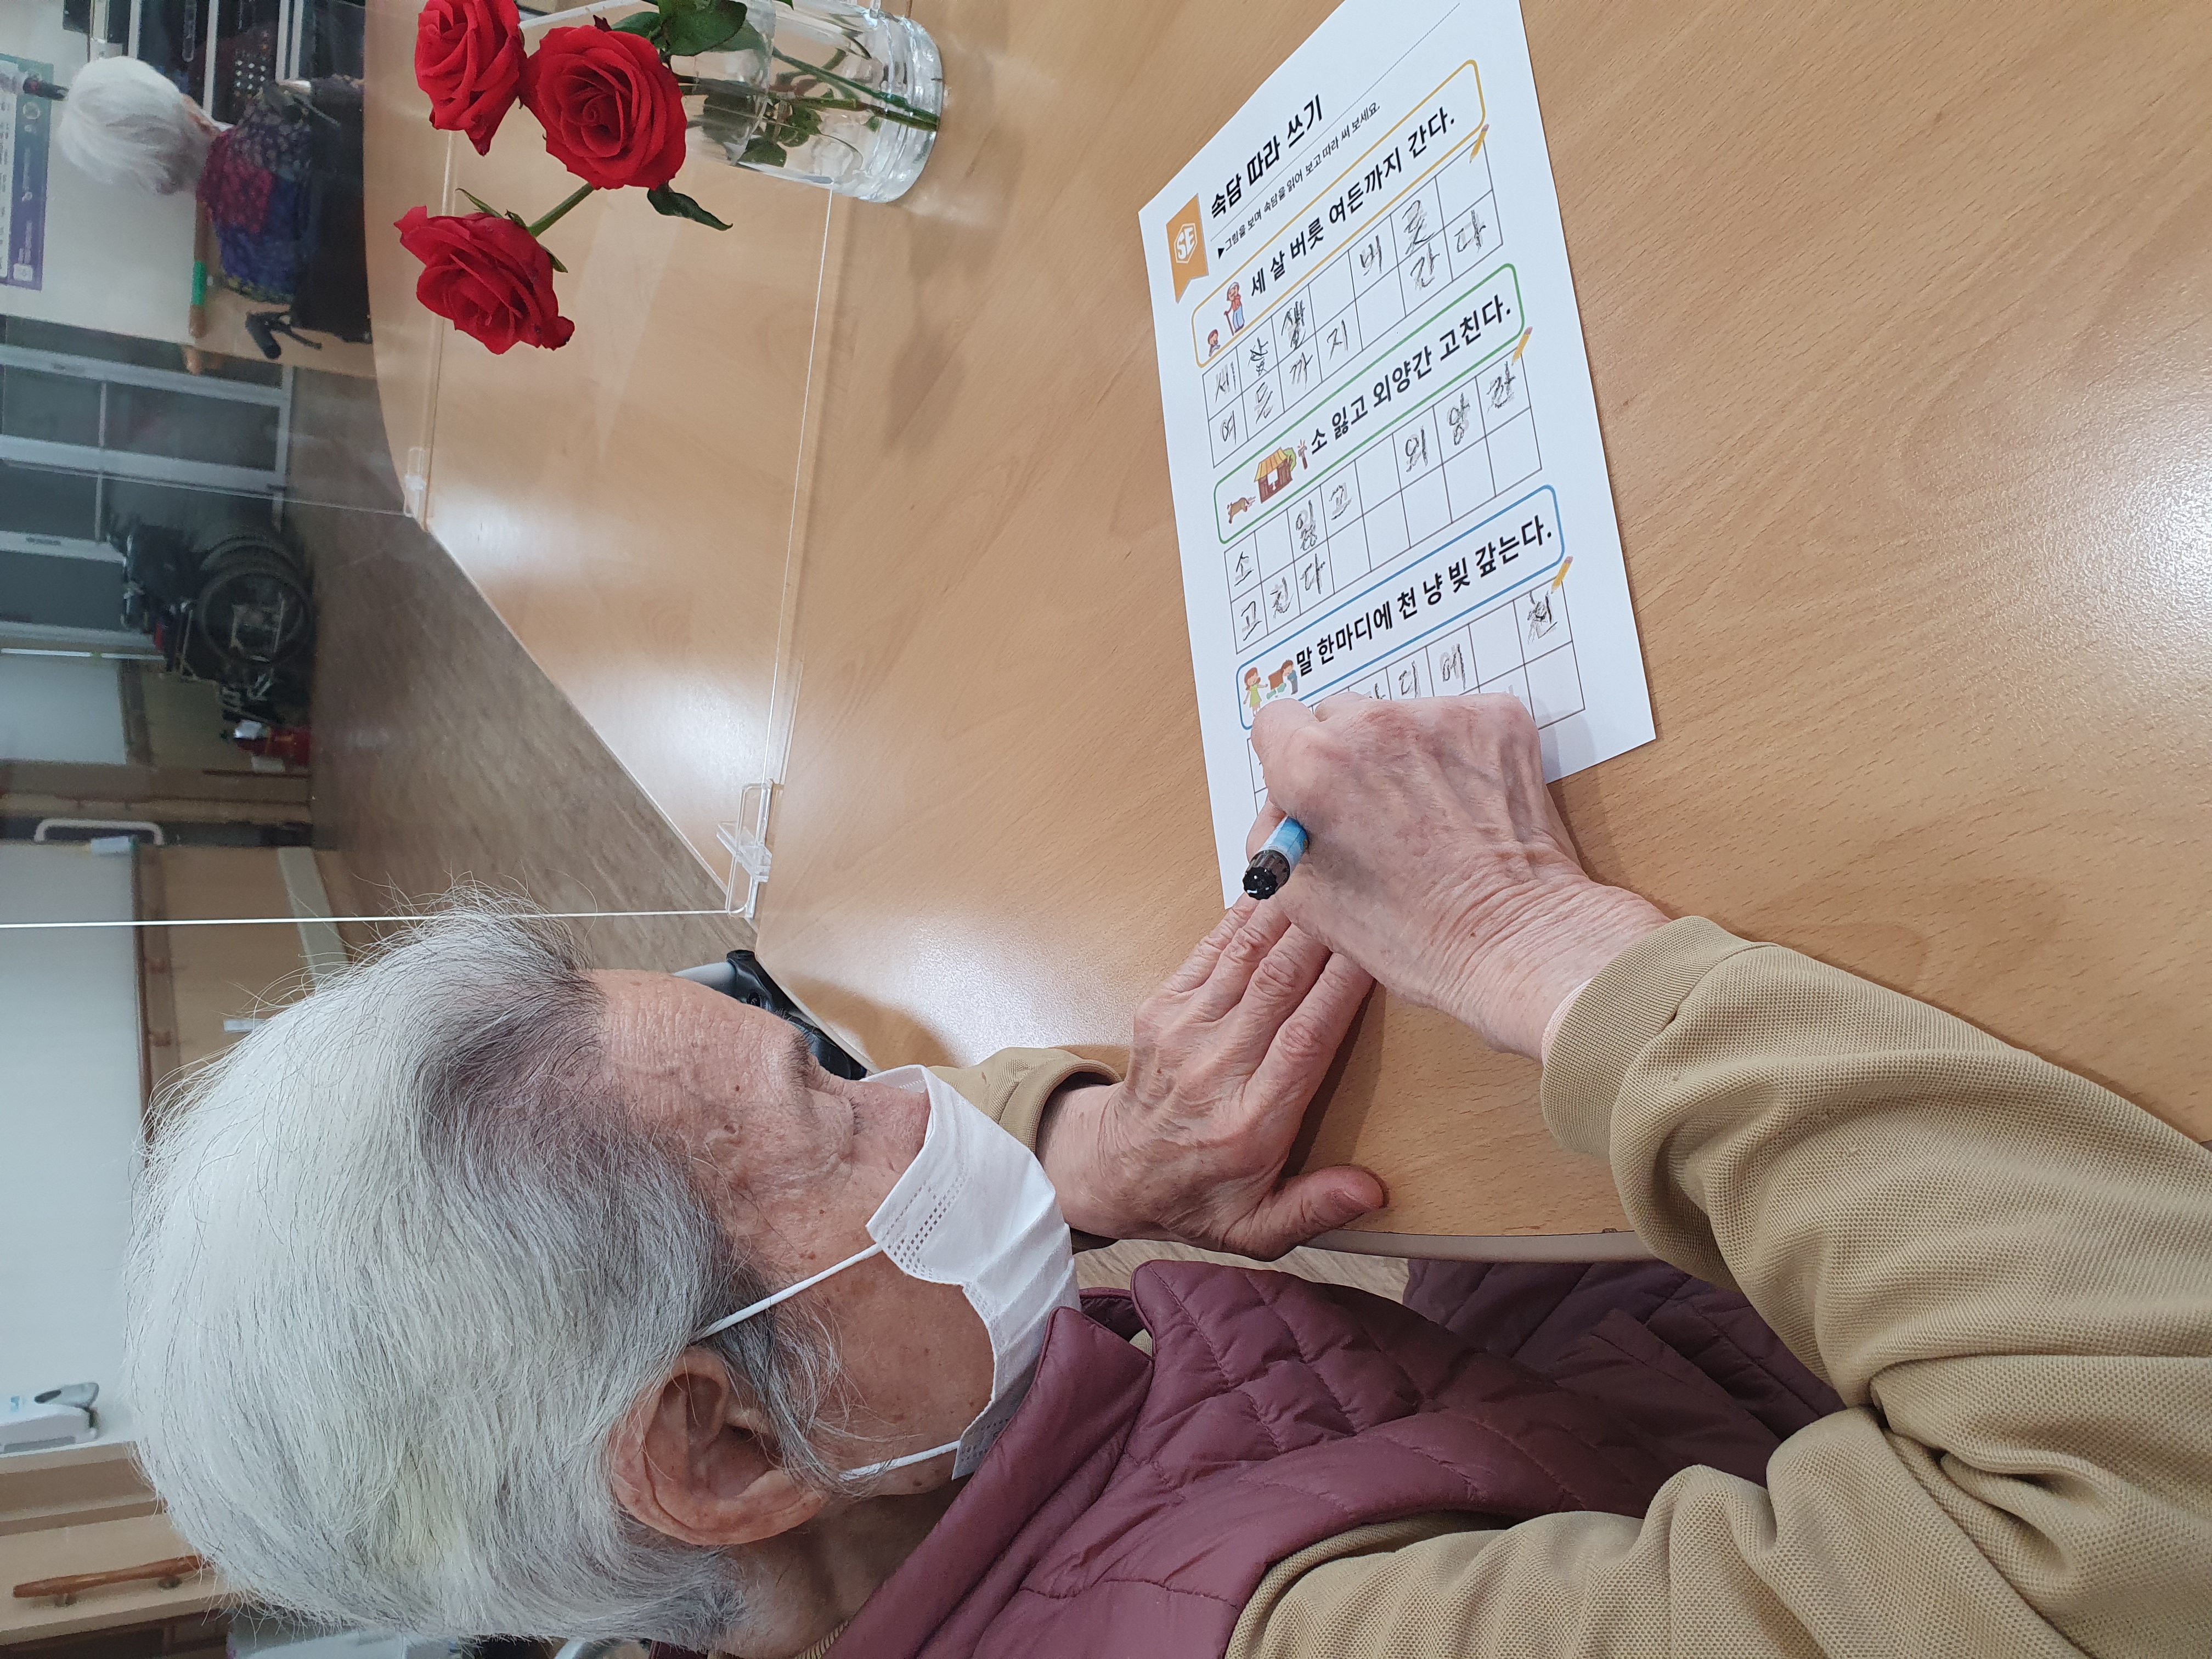 SE
속담 따라 쓰기
▶그림을 보며 속담을 읽어 보고 따라 써 보세요.
세 살 버릇 여든까지 간다.
세 살 살 버 릇
여 든 까 지 간 다
소 잃고 외양간 고친다.
소 잃 고 외 양 간
고 친 다
말 한마디에 천 냥 빚 갚는다.
디 에 천